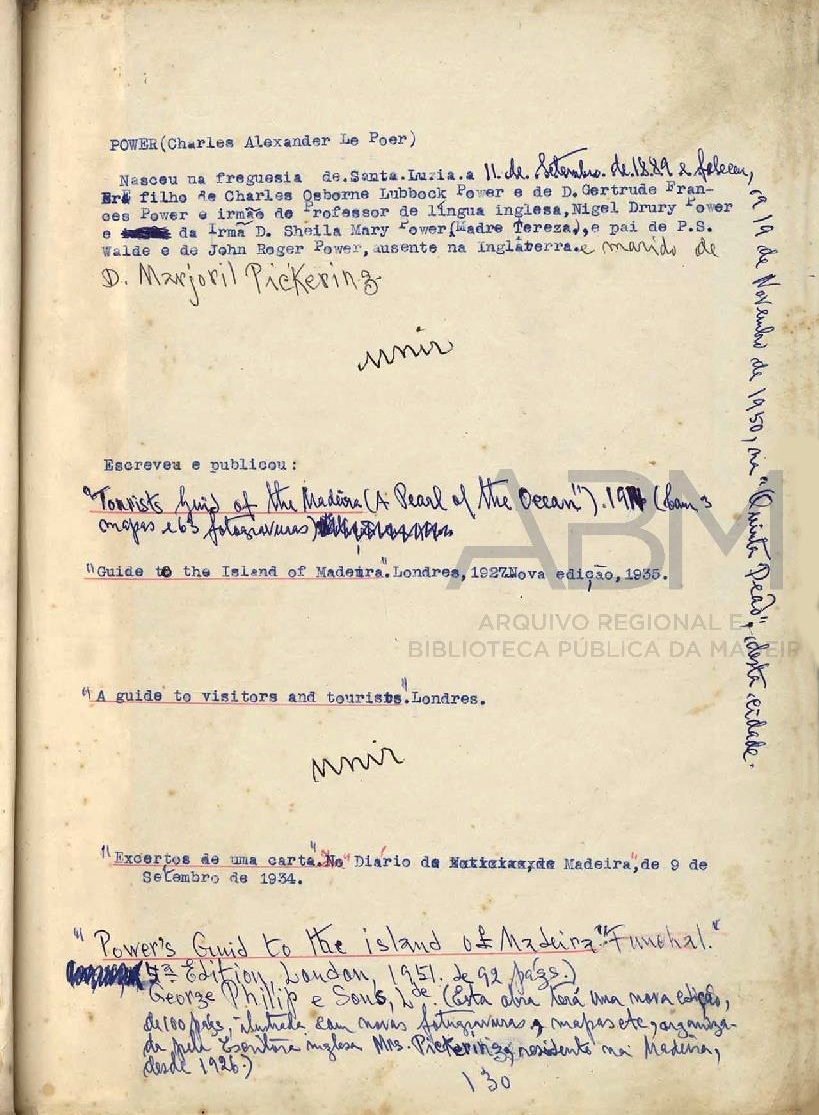 POWER(Charles Alexander Le Poer)
Nasceu na freguesia de Santa Luzia a 11 de Setembro de 1889 e faleceu,
a 19 de Novembro de 1950, na "Quinta Deão", desta cidade.
Era filho de Charles Osborne Lubbock Power e de D. Gertrude Fran-
ces Power e irmão do Professor de língua inglesa, Nigel Drury Power
e da Irmã D. Sheila Mary Power(Madre Tereza), e pai de P.S.
Walde e de John Roger Power, ausente na Inglaterra. e marido de
D. Marjoril Pickering
unir
Escreveu e publicou:
"Tourists Guid of the Madeira (A Pearl of the Ocean"). (Com 3
mapas e 63 fotogravuras)
"Guide to the Island of Madeira". Londres, 1927. Nova edição, 1935.
ABM
ARQUIVO REGIONAL E
BIBLIOTECA PÚBLICA DA MADEIR
"A guide to visitors and tourists". Londres.
unir
"Excertos de uma carta". No "Diário de Noticias, da Madeira", de 9 de
Setembro de 1934.
"Power's Guid to the island of Madeira" "Funchal."
5ª Edition, London, 1951. de 92 págs.)
George Philip e Sons, Lde. (Esta obra terá uma nova edição,
de 100 págs, ilustrada com novas fotogravuras, mapas etc, organiza-
da pela Escritora inglesa Mrs. Pickering, residente na Madeira,
desde 1926.)
130